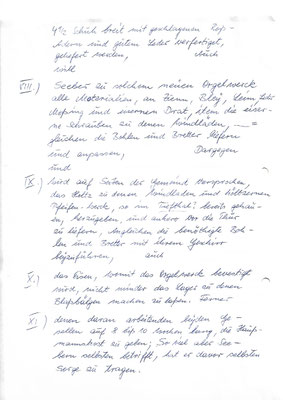 4 1/2 Schuh breit mit geschlagenen
und gutem Leder verfertiget,
geliefert werden, Auch
will
VIII) Seeber zu solchem neuen Orgelwerck
alle Materialien, an Zinn, Bley, Leim, Leder
Meßing und eisernem Drat, item die eiser-
ne Schrauben zu denen Windläden,
gleichen die Bohlen und Bretter liefern
und anpassen, Dargegen
und
IX.) wird auf Seiten der Gemeind versprochen,
das Holtz zu denen Windladen und höltzernen
Pfeifen so im bereits gehau-
en, herzugeben, und anhero vor die Thür
zu liefern, ingleichen die benöthigte Boh-
len und Bretter mit ihrem Geschirr
beizuführen, auch
X.) das Eisen, womit das Orgelwerck bevestigt
wird, nicht minder das Lager zu denen
Blaßbälgen machen zu laßen. Ferner
XI.) denen daran arbeitenden beyden Ge-
sellen auf 8 biß 10 Wochen lang, die Hauß-
mannskost zu geben; So viel aber See-
bern selbsten betrifft, hat er davor selbsten
Sorge zu tragen.